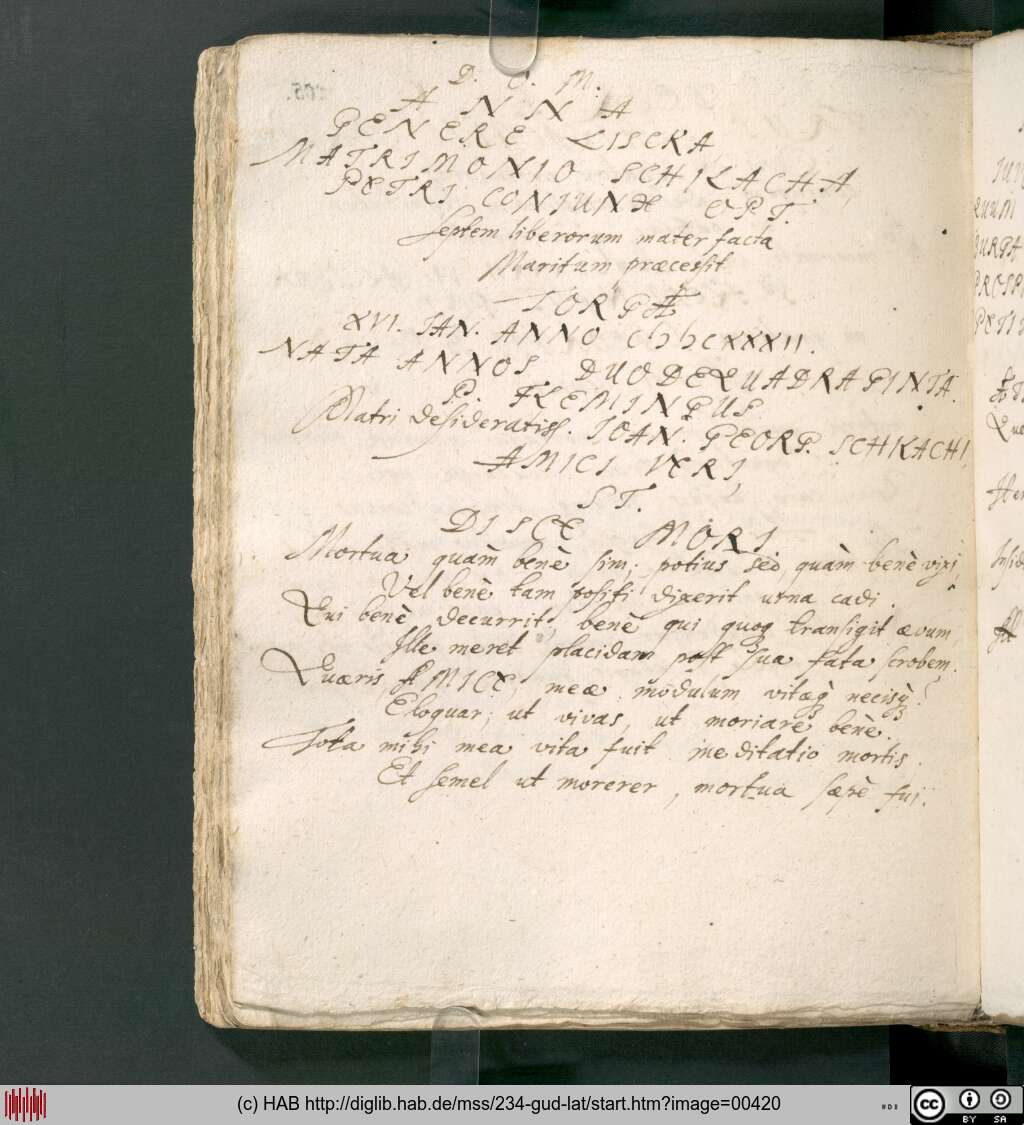 D. O. M.
ANNA
GENERE LISCKA
MATRIMONIO SCHLACHA,
PETRI CONJUNX OPT.
Septem liberorum mater facta
Maritum præcessit
TORGÆ
XVI. IAN. ANNO CIↃIↃCXXXII.
NATA ANNOS DUODEQUADRAGINTA.
P. FLEMINGUS
Matri desideratiss. IOAN. GEORG. SCHLACHI,
AMICI VERI,
ST.
DISCE MORI.
Mortua quàm benè sim, potius sed, quàm benè vixi,
Vel benè tam positi dixerit urna cadi.
Qui benè decurrit, benè qui quoq; transigit ævum,
Ille meret placidam post sua fata scrobem.
Quæris AMICE, meæ modulum vitæq; necisq;?
Eloquar; ut vivas, ut moriare benè.
Tota mihi mea vita fuit meditatio mortis.
Et semel ut morerer, mortua sæpè fui.
(c) HAB http://diglib.hab.de/mss/234-gud-lat/start.htm?image=00420
cc BY SA